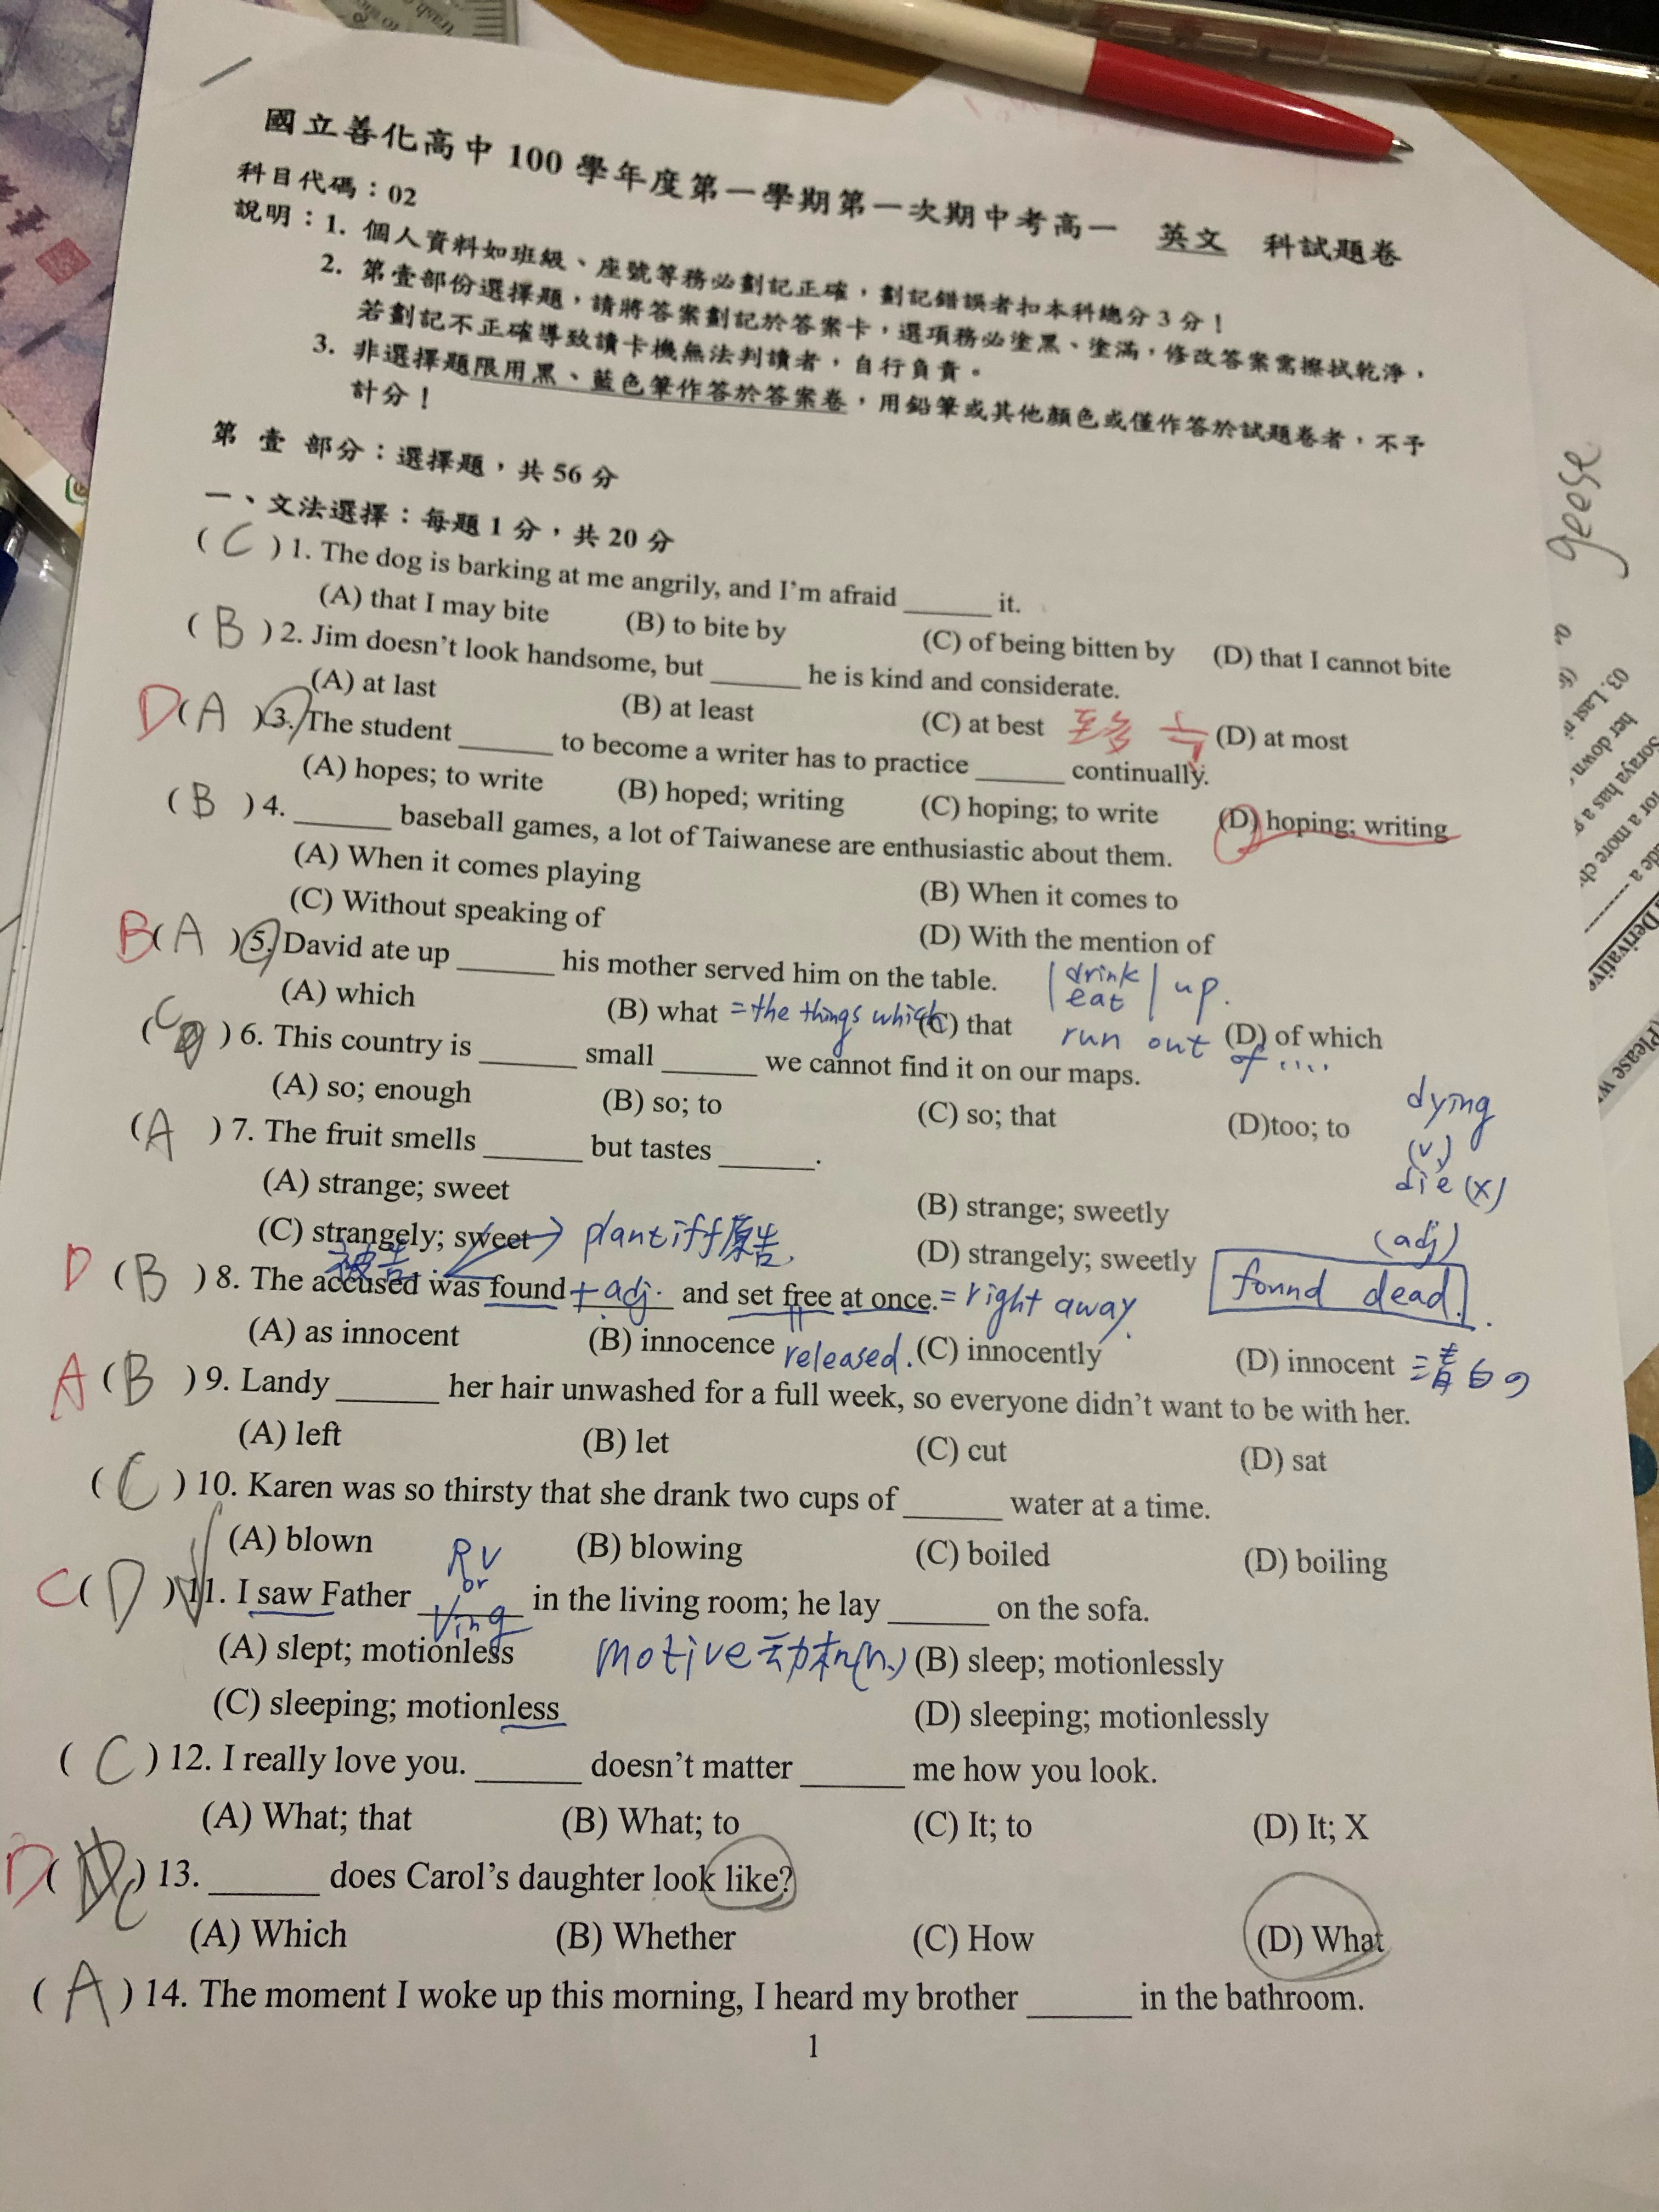 國立善化高中 100 學年度第一學期第一次期中考高一 英文 科試題卷
科目代碼：02
說明：1. 個人資料如班級、座號等務必劃記正確，劃記錯誤者扣本科總分 3 分！
2. 第壹部份選擇題，請將答案劃記於答案卡，選項務必塗黑、塗滿，修改答案需擦拭乾淨，
若劃記不正確導致讀卡機無法判讀者，自行負責。
3. 非選擇題限用黑、藍色筆作答於答案卷，用鉛筆或其他顏色或僅作答於試題卷者，不予
計分！
第 壹 部分：選擇題，共 56 分
一、文法選擇：每題 1 分，共 20 分
( C ) 1. The dog is barking at me angrily, and I'm afraid ______ it.
(A) that I may bite (B) to bite by (C) of being bitten by (D) that I cannot bite
( B ) 2. Jim doesn't look handsome, but ______ he is kind and considerate.
(A) at last (B) at least (C) at best 至多 (D) at most
D ( A ) 3. The student ______ to become a writer has to practice ______ continually.
(A) hopes; to write (B) hoped; writing (C) hoping; to write (D) hoping; writing
( B ) 4. ______ baseball games, a lot of Taiwanese are enthusiastic about them.
(A) When it comes playing (B) When it comes to
(C) Without speaking of (D) With the mention of
B ( A ) 5. David ate up ______ his mother served him on the table.
drink
eat up.
(A) which (B) what = the things which (C) that (D) of which
run out of ....
( C ) 6. This country is ______ small ______ we cannot find it on our maps.
(A) so; enough (B) so; to (C) so; that (D)too; to
dying
(v)
die (x)
( A ) 7. The fruit smells ______ but tastes ______.
(A) strange; sweet (B) strange; sweetly
(C) strangely; sweet (D) strangely; sweetly
被告 plantiff 原告
(adj)
found dead.
D ( B ) 8. The accused was found + adj. ______ and set free at once. = right away.
(A) as innocent (B) innocence (C) innocently (D) innocent 清白の
released.
A ( B ) 9. Landy ______ her hair unwashed for a full week, so everyone didn't want to be with her.
(A) left (B) let (C) cut (D) sat
( C ) 10. Karen was so thirsty that she drank two cups of ______ water at a time.
(A) blown (B) blowing (C) boiled (D) boiling
RV
or
Ving
C ( D ) 11. I saw Father ______ in the living room; he lay ______ on the sofa.
(A) slept; motionless motive 动机(n.) (B) sleep; motionlessly
(C) sleeping; motionless (D) sleeping; motionlessly
( C ) 12. I really love you. ______ doesn't matter ______ me how you look.
(A) What; that (B) What; to (C) It; to (D) It; X
D ( C ) 13. ______ does Carol's daughter look like?
(A) Which (B) Whether (C) How (D) What
( A ) 14. The moment I woke up this morning, I heard my brother ______ in the bathroom.
1
geese
03. Last
her down
Soraya has a
for a more
Derivative
(Please